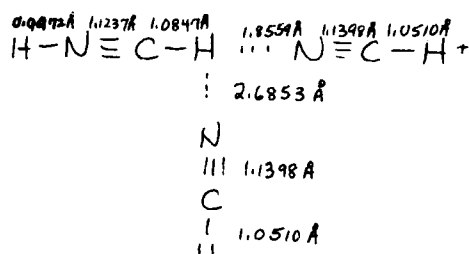 0.9972Å 1.1237Å 1.0847Å 1.8559Å 1.1398Å 1.0510Å
H–N≡C–H ⋯ N≡C–H +
⋮ 2.6853 Å
N
||| 1.1398 Å
C
| 1.0510 Å
H